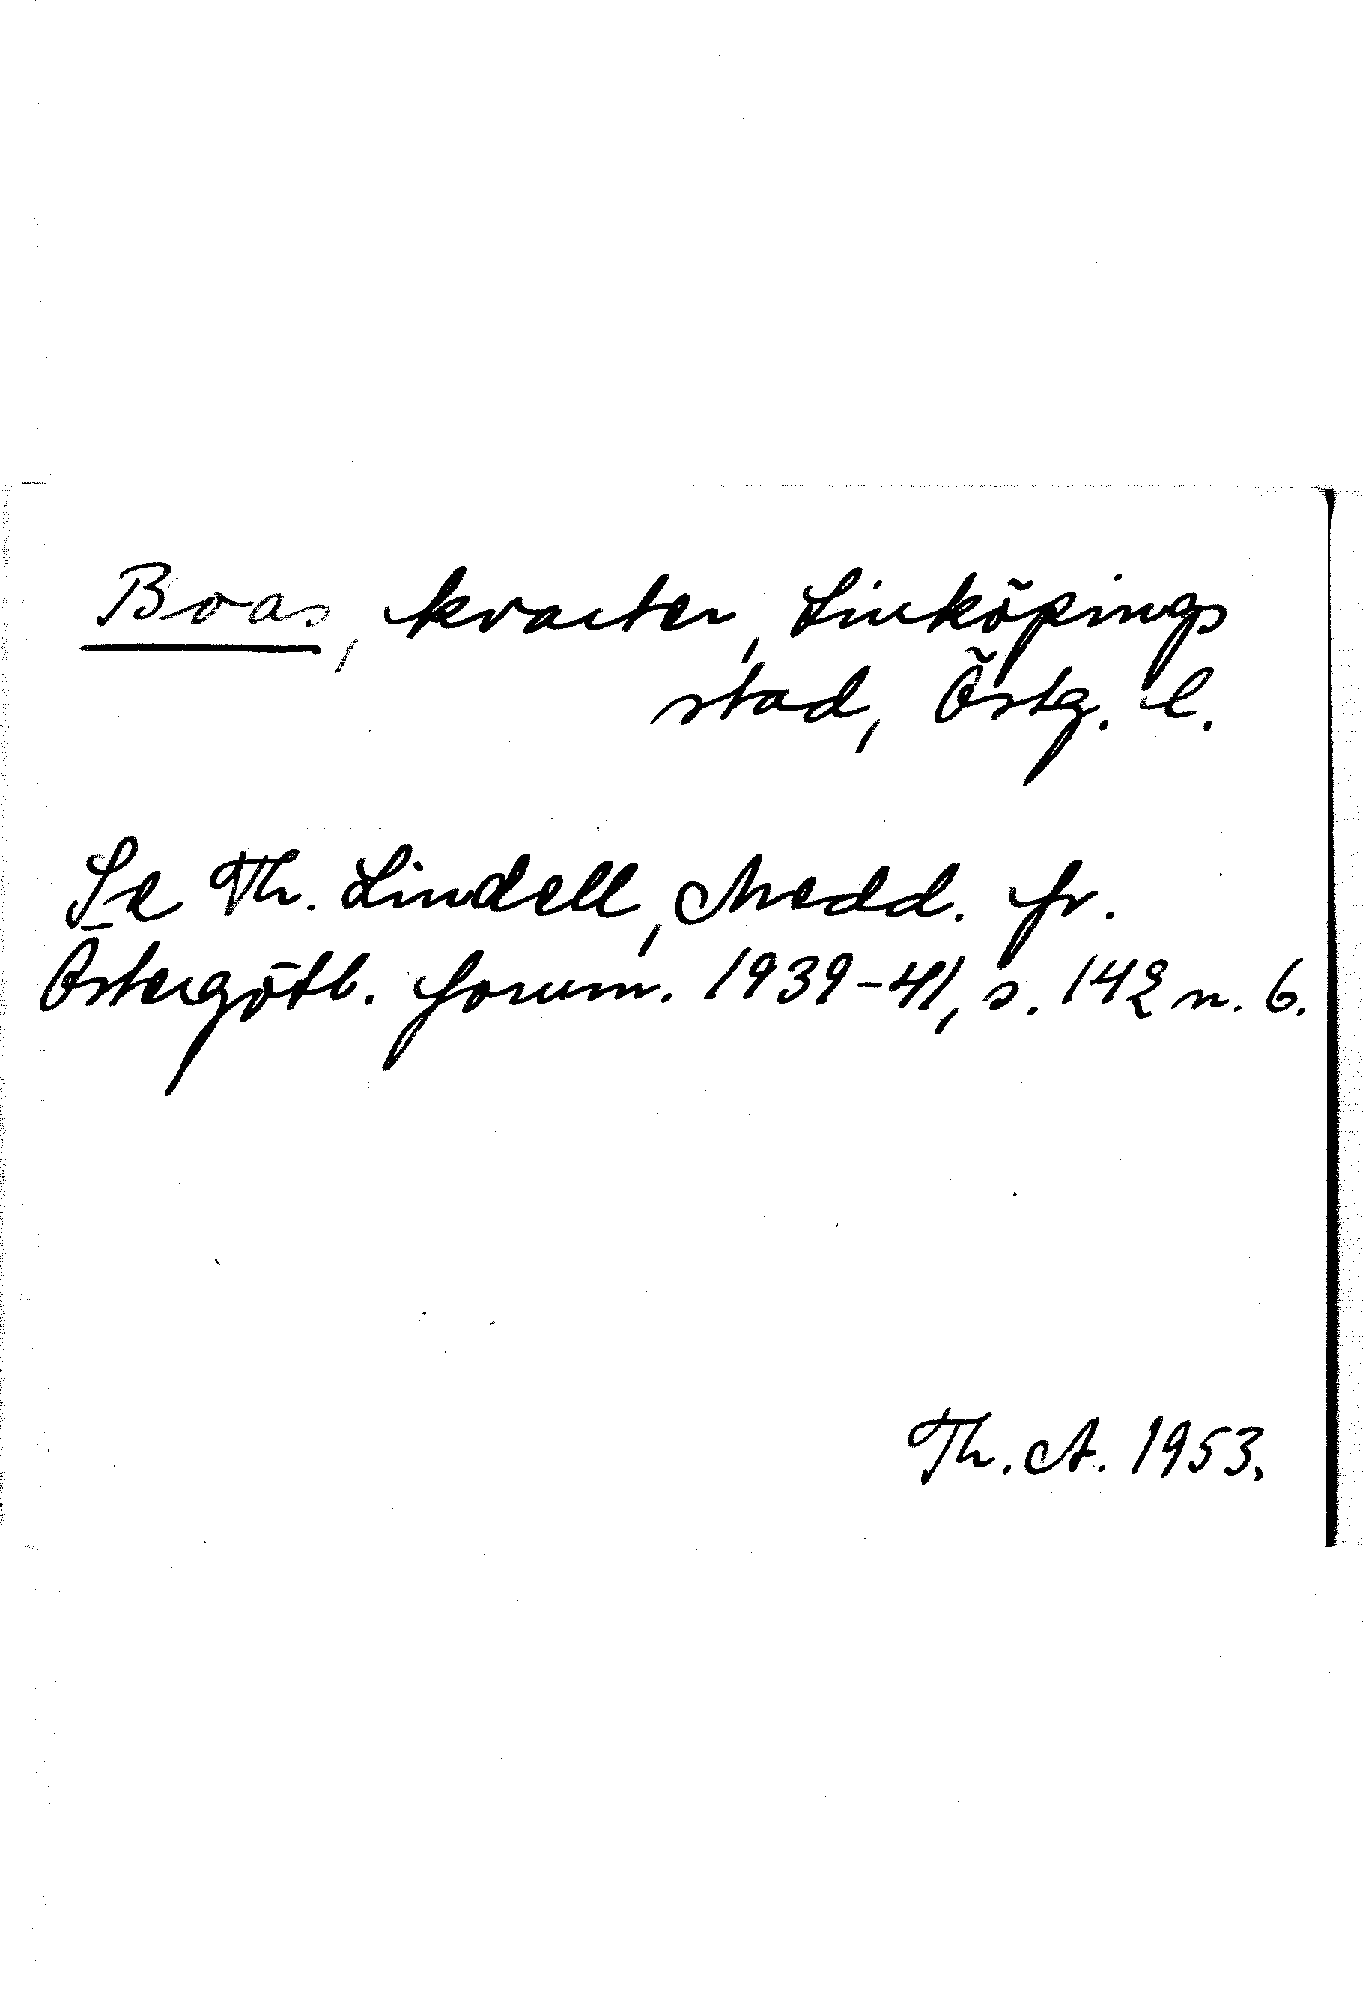 Boas, kvarter, Linköpings
stad, Östg. l.
Se Th. Lindell, Medd. fr.
Östergötl. fornm. 1939-41, s. 142 n. 6.
Th. A. 1953.